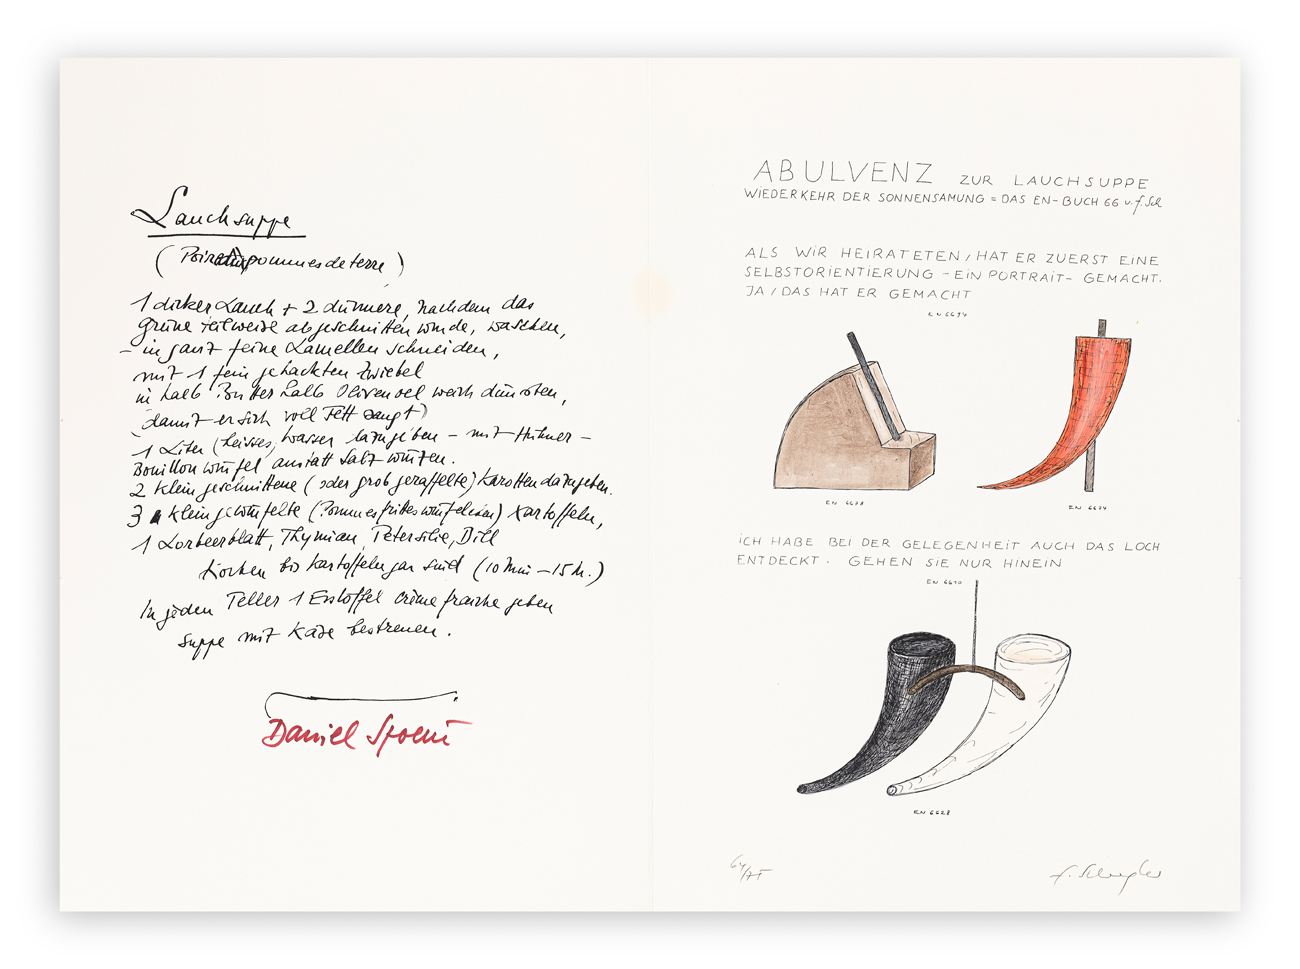 Lauchsuppe
( pommes de terre )
1 dicker Lauch + 2 dünnere, nachdem das
grüne teilweise abgeschnitten wurde, waschen,
– in ganz feine Lamellen schneiden,
mit 1 fein gehackten Zwiebel
in halb Butter halb Olivenoel weich dünsten,
(damit er sich voll Fett saugt)
1 Liter (heisses) Wasser dazugeben – mit Hühner –
Bouillon würfel anstatt Salz würzen.
2 klein geschnittene (oder grob geraffelte) Karotten dazugeben.
3 klein gewürfelte (Pommes frittes würfelchen) Kartoffeln,
1 Lorbeerblatt, Thymian, Petersilie, Dill
Kochen bis Kartoffeln gar sind (10 Min – 15 M.)
In jeden Teller 1 Esslöffel crème fraiche geben
Suppe mit Käse bestreuen.
Daniel Spoerri
ABULVENZ ZUR LAUCHSUPPE
WIEDERKEHR DER SONNENSAMUNG = DAS EN-BUCH 66 v. f. Sch
ALS WIR HEIRATETEN, HAT ER ZUERST EINE
SELBSTORIENTIERUNG - EIN PORTRAIT - GEMACHT.
JA, DAS HAT ER GEMACHT
EN 6694
EN 6678
EN 6674
ICH HABE BEI DER GELEGENHEIT AUCH DAS LOCH
ENTDECKT. GEHEN SIE NUR HINEIN
EN 6670
EN 6628
64/75